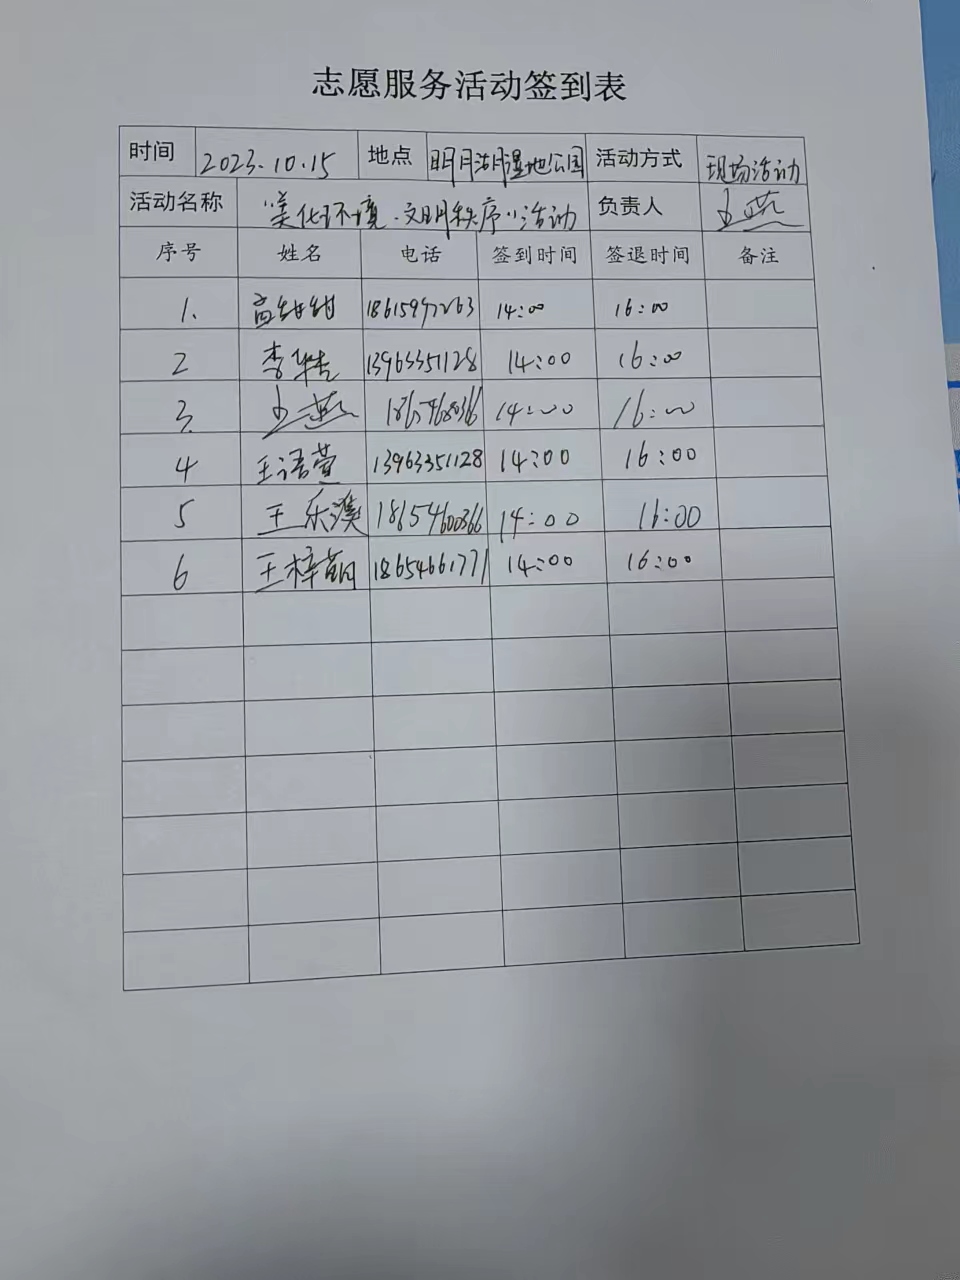 志愿服务活动签到表
时间 2023.10.15 地点 明月湖湿地公园 活动方式 现场活动
活动名称 "美化环境.文明秩序"活动 负责人 王燕
序号 姓名 电话 签到时间 签退时间 备注
1. 高甜甜 18615997263 14:00 16:00
2 李 13963351128 14:00 16:00
3. 王燕 14:00 16:00
4 王语萱 13963351128 14:00 16:00
5 王乐 18654600366 14:00 16:00
6 王梓萌 18654661771 14:00 16:00